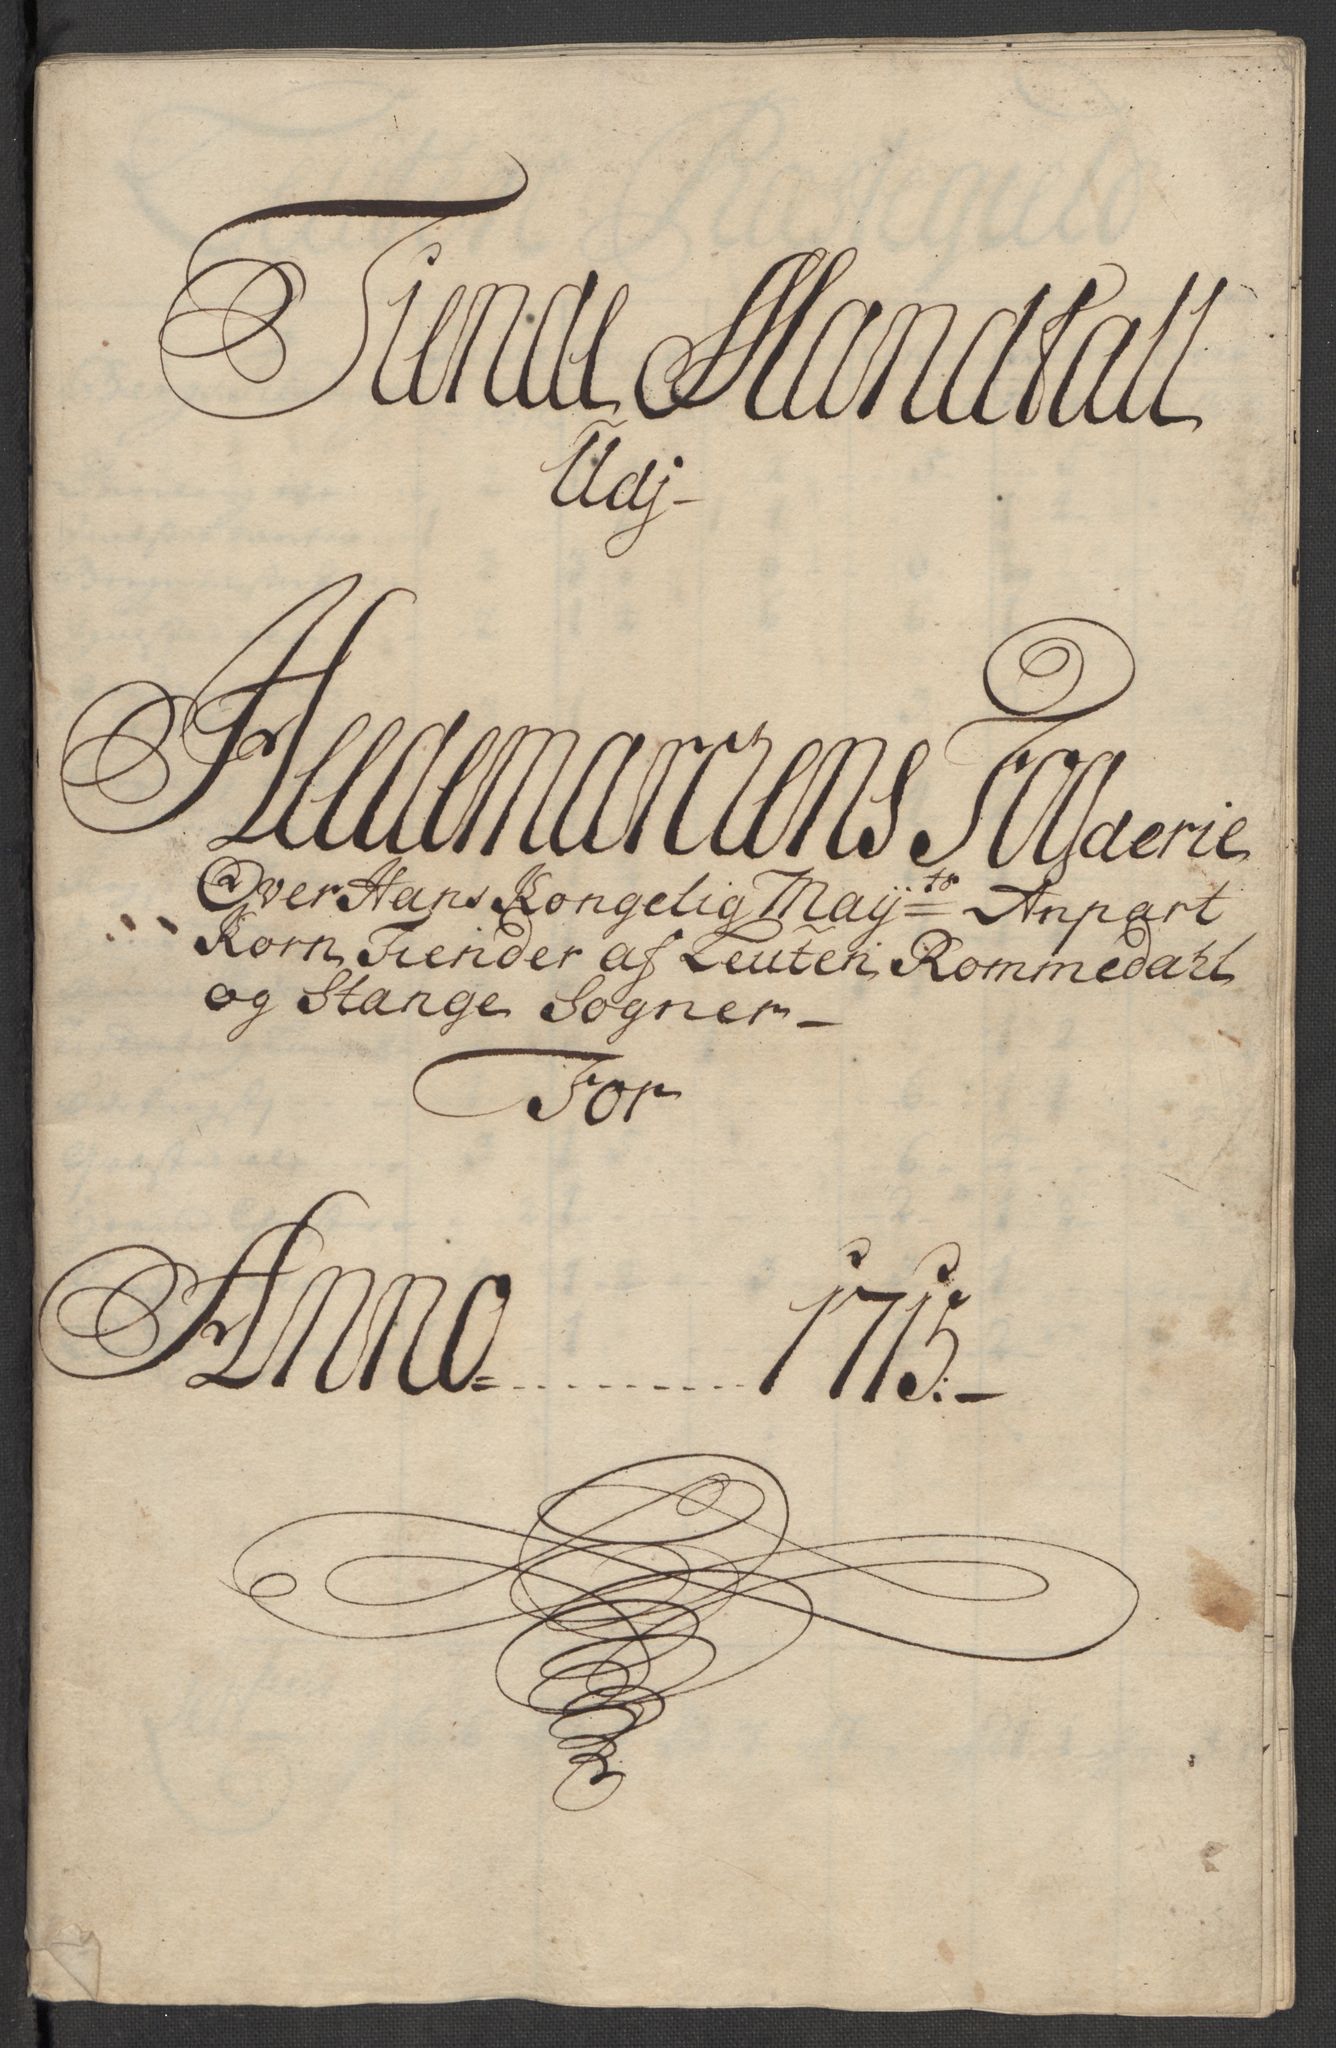 Tiende Mandtall
Udj-
Heedemarckens Fogderie
Over Hans Kongelig Maÿ:ts Anpart
Korn Tiender af Leuten, Rommedahl
og Stange Sogner-
For
Anno=..........1715:-